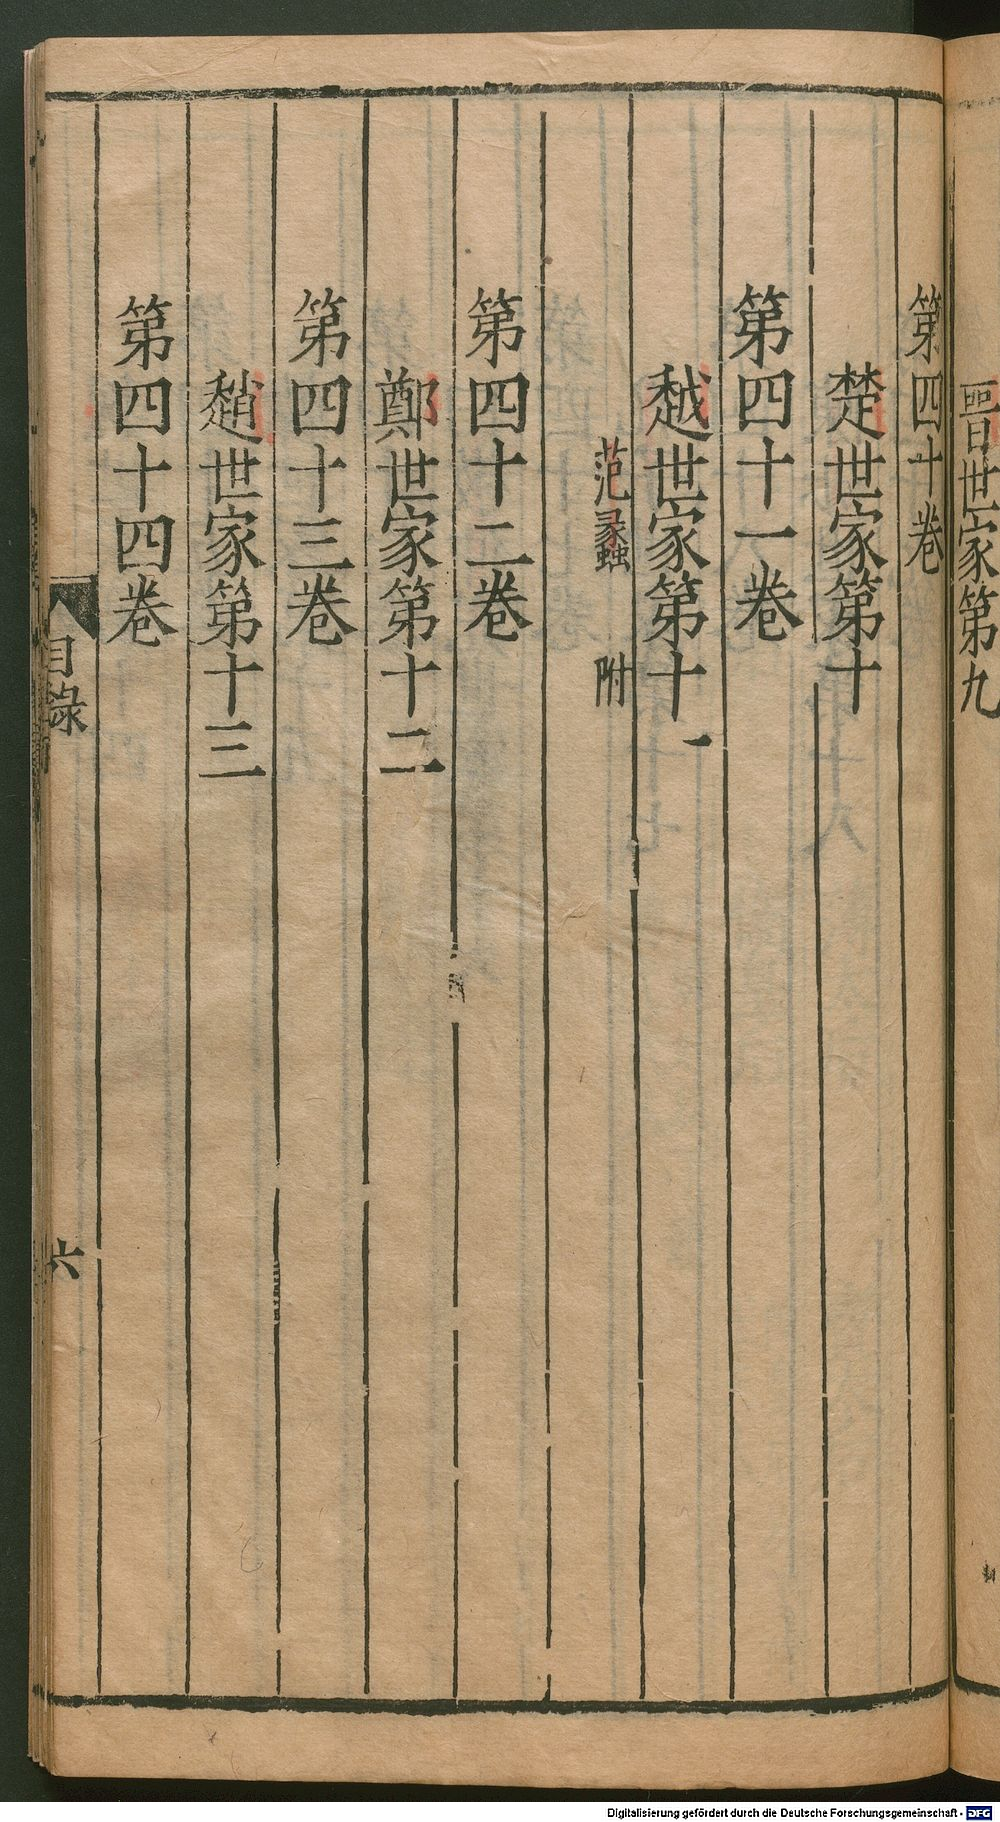 晉世家第九
第四十卷
楚世家第十
第四十一卷
越世家第十一
范蠡 附
第四十二卷
鄭世家第十二
第四十三卷
趙世家第十三
第四十四卷
目錄
六
Digitalisierung gefördert durch die Deutsche Forschungsgemeinschaft - DFG